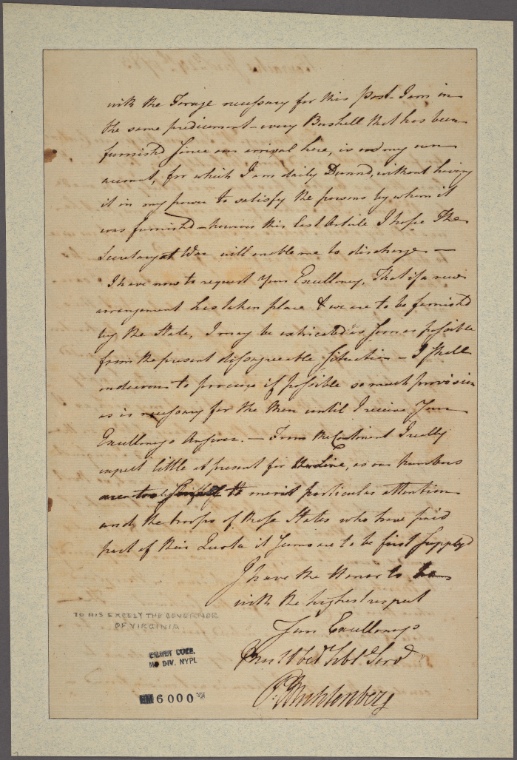 with the Forage necessary for this Post I am in
the same predicament every Bushell that has been
furnishd Since our arrival here, is on my own
account, for which I am daily Dunnd, without having
it in my power to satisfy the persons by whom it
was furnishd however this last Article I hope the
Secretary at War will enable me to discharge —
I have now to request Your Excellency, That if a new
arrangement has taken place & we are to be furnishd
by the State, I may be extricated as soon as possible
from the present disagreeable Situation — I shall
endeavour to procure if possible so much provision
as is necessary for the Men until I receive Your
Excellencys Answer. — From the Continent I really
expect little at present for, as our numbers
are too to merit particular attention
and the troops of those States who have paid
part of their Quota it seems are to be first supplyd
I have the Honor to be
with the highest respect
Your Excellencys
Most Obedt Hbl Servt
P: Muhlenberg
TO HIS EXCELLY THE GOVERNOR
OF VIRGINIA
EMMET COLL.
MS DIV. NYPL
EM 6000